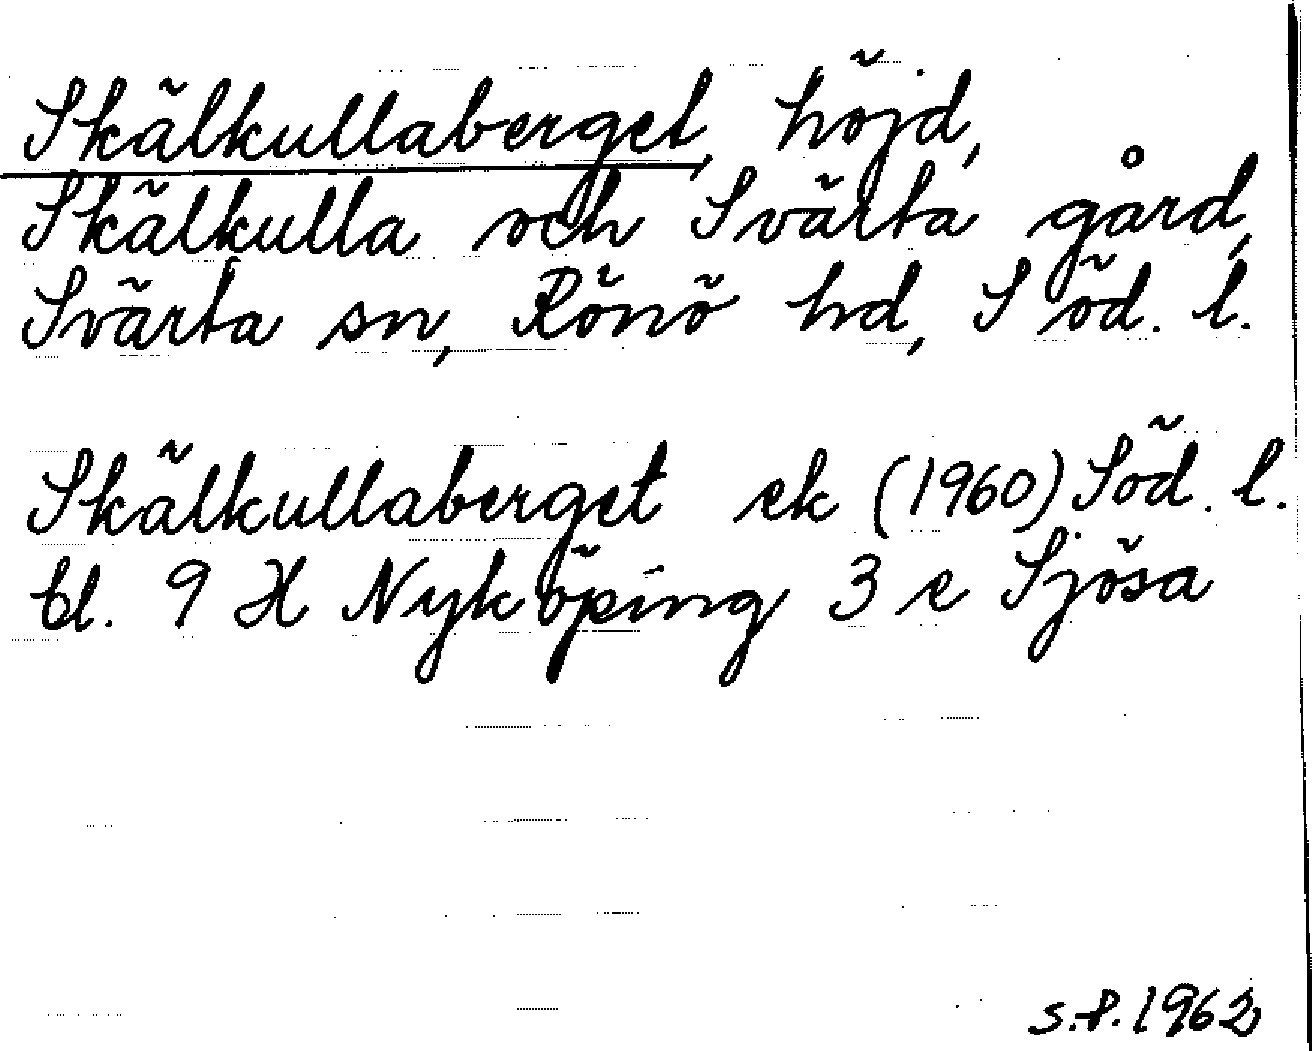 Skälkullaberget, höjd,
Skälkulla och Svärta gård,
Svärta sn, Rönö hd, Söd. l.
Skälkullaberget ek (1960) Söd. l.
bl. 9 H Nyköping 3 e Sjösa
S.P. 1962